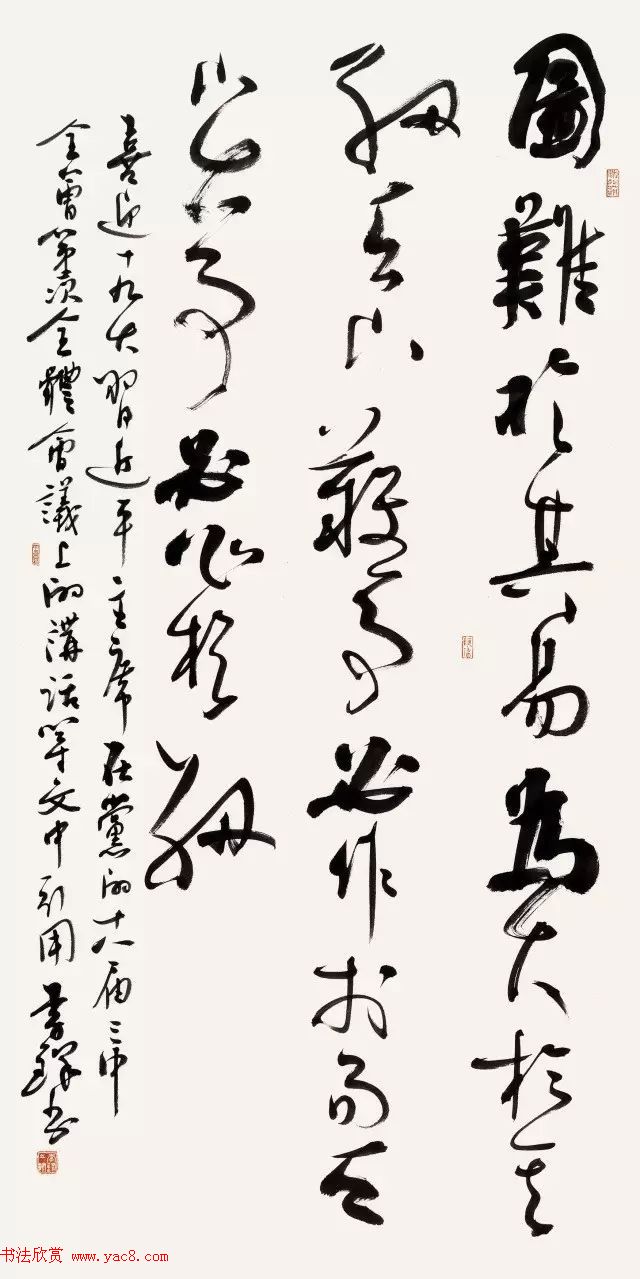 圖難於其易為大於其
細天下難事必作於易天
下大事必作於細
喜迎十九大習近平主席在黨的十八屆三中
全會第二次全體會議上的講話等文中引用
书法欣赏 www.yac8.com